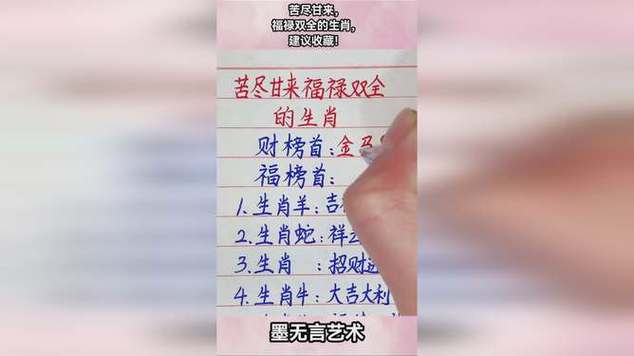 苦尽甘来,
福禄双全的生肖,
建议收藏!
苦尽甘来福禄双全
的生肖
财榜首:金马
福榜首:
1.生肖羊:吉
2.生肖蛇:祥云
3.生肖 :招财进
4.生肖牛:大吉大利
墨无言艺术